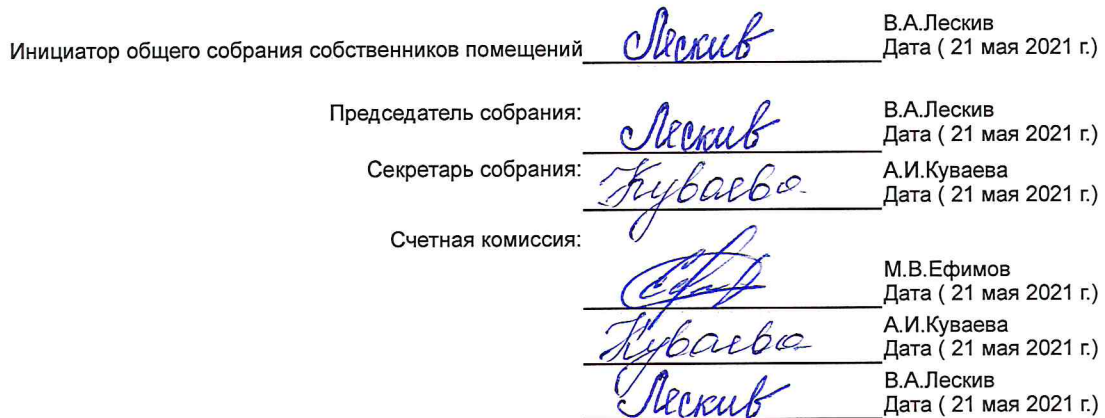 В.А.Лескив
Инициатор общего собрания собственников помещений Лескив Дата ( 21 мая 2021 г.)
Председатель собрания: Лескив В.А.Лескив
Дата ( 21 мая 2021 г.)
Секретарь собрания: Куваева А.И.Куваева
Дата ( 21 мая 2021 г.)
Счетная комиссия:
М.В.Ефимов
Дата ( 21 мая 2021 г.)
Куваева А.И.Куваева
Дата ( 21 мая 2021 г.)
Лескив В.А.Лескив
Дата ( 21 мая 2021 г.)